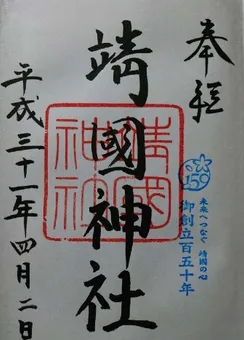 奉拝
靖國神社
靖國神社
150
未来へつなぐ 靖國の心
御創立百五十年
平成三十一年四月二日